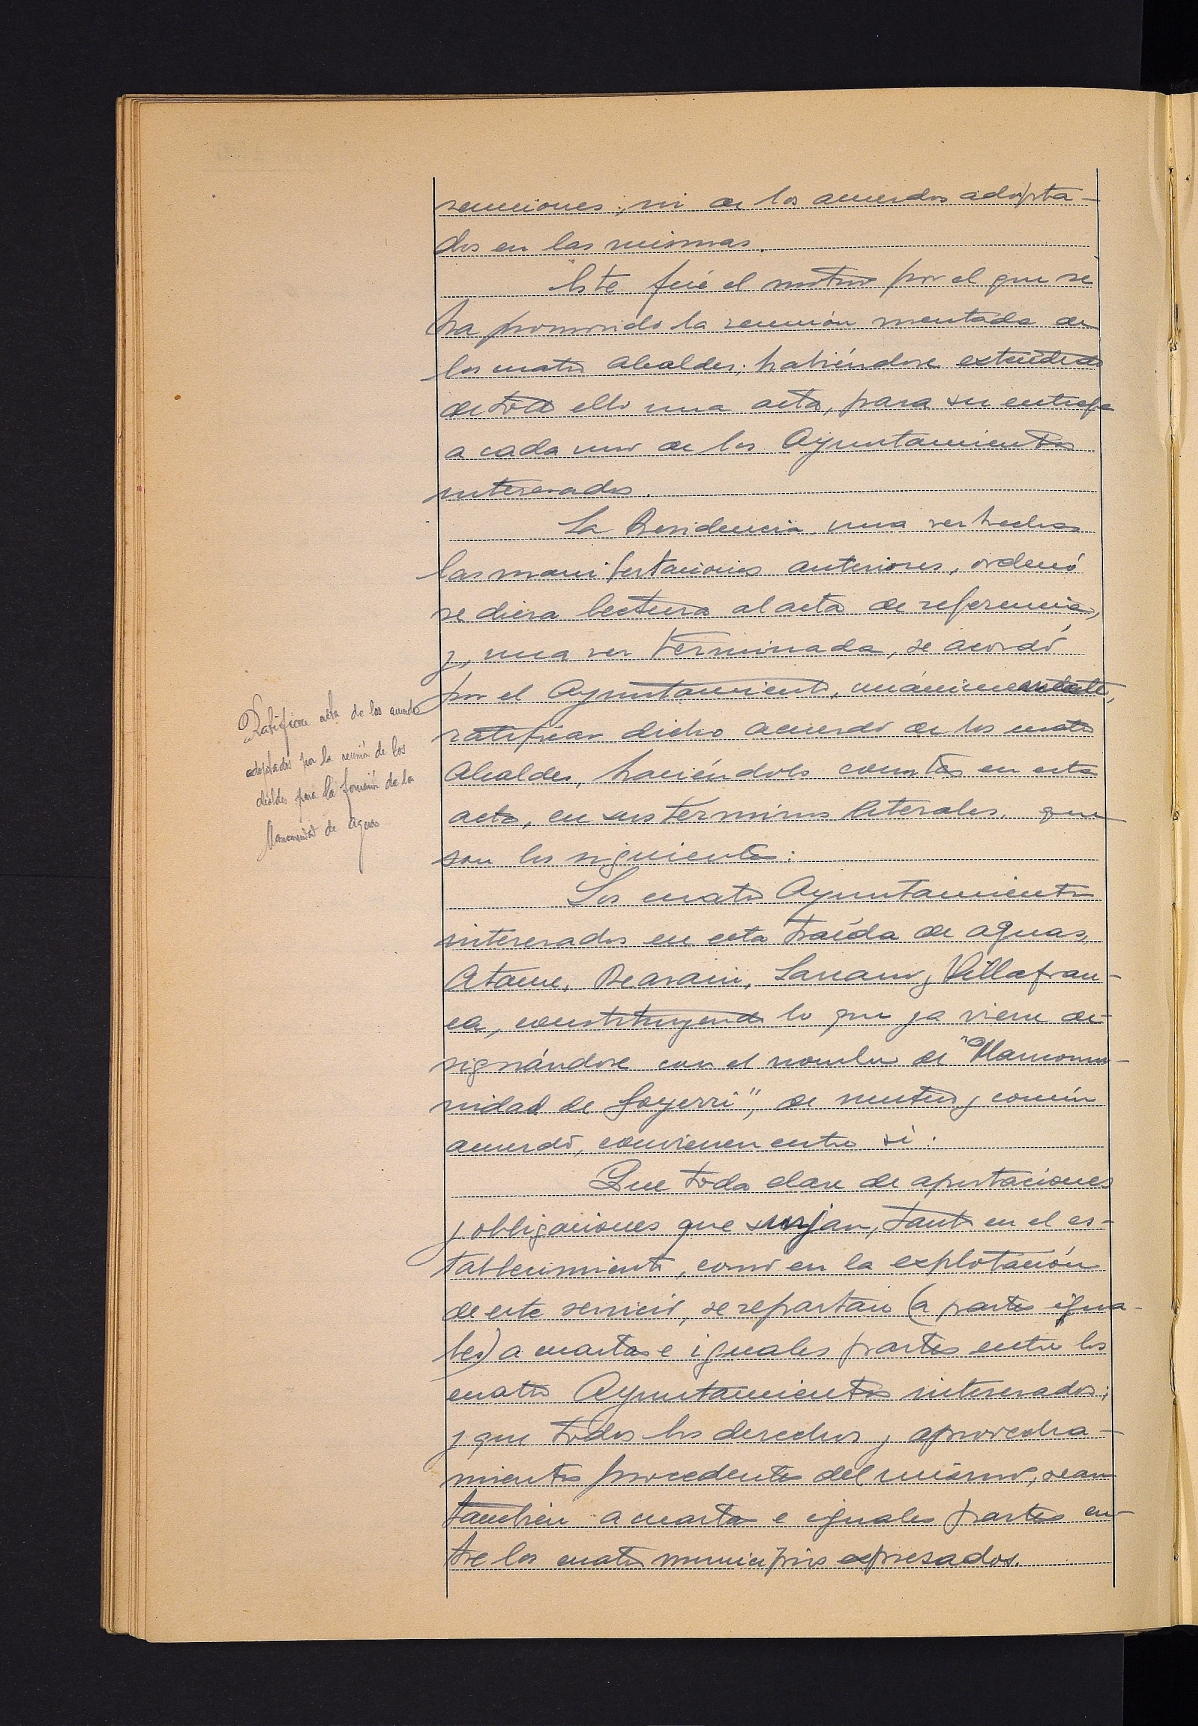 reuniones, ni de los acuerdos adopta-
dos en las mismas.
Este fué el motivo por el que se
ha promovido la reunión mentada de
los cuatro Alcaldes; habiéndose extendido
de todo ello una acta, para su entrega
a cada uno de los Ayuntamientos
interesados.
La Presidencia, una vez hechas
las manifestaciones anteriores, ordenó
se diera lectura al acta de referencia,
y, una vez terminada, se acordó
por el Ayuntamiento, unánimemente,
ratificar dicho acuerdo de los cuatro
Alcaldes, haciéndolo constar en esta
acta, en sus términos literales, que
son los siguientes:
Ratificar acta de los acuerdos
adoptados por la reunión de los
alcaldes para la formación de la
Mancomunidad de Aguas
Los cuatro Ayuntamientos
interesados en esta traída de aguas,
Ataun, Beasain, Lazcano y Villafran-
ca, constituyendo lo que ya viene de-
signándose con el nombre de "Mancomu-
nidad de Goyerri", de mutuo y común
acuerdo, convienen entre sí:
Que toda clase de aportaciones
y obligaciones que surjan, tanto en el es-
tablecimiento, como en la explotación
de este servicio, se repartan (a partes igua-
les) a cuartas e iguales partes entre los
cuatro Ayuntamientos interesados;
y que todos los derechos y aprovecha-
mientos procedentes del mismo, sean
también a cuartas e iguales partes en-
tre los cuatro municipios expresados.